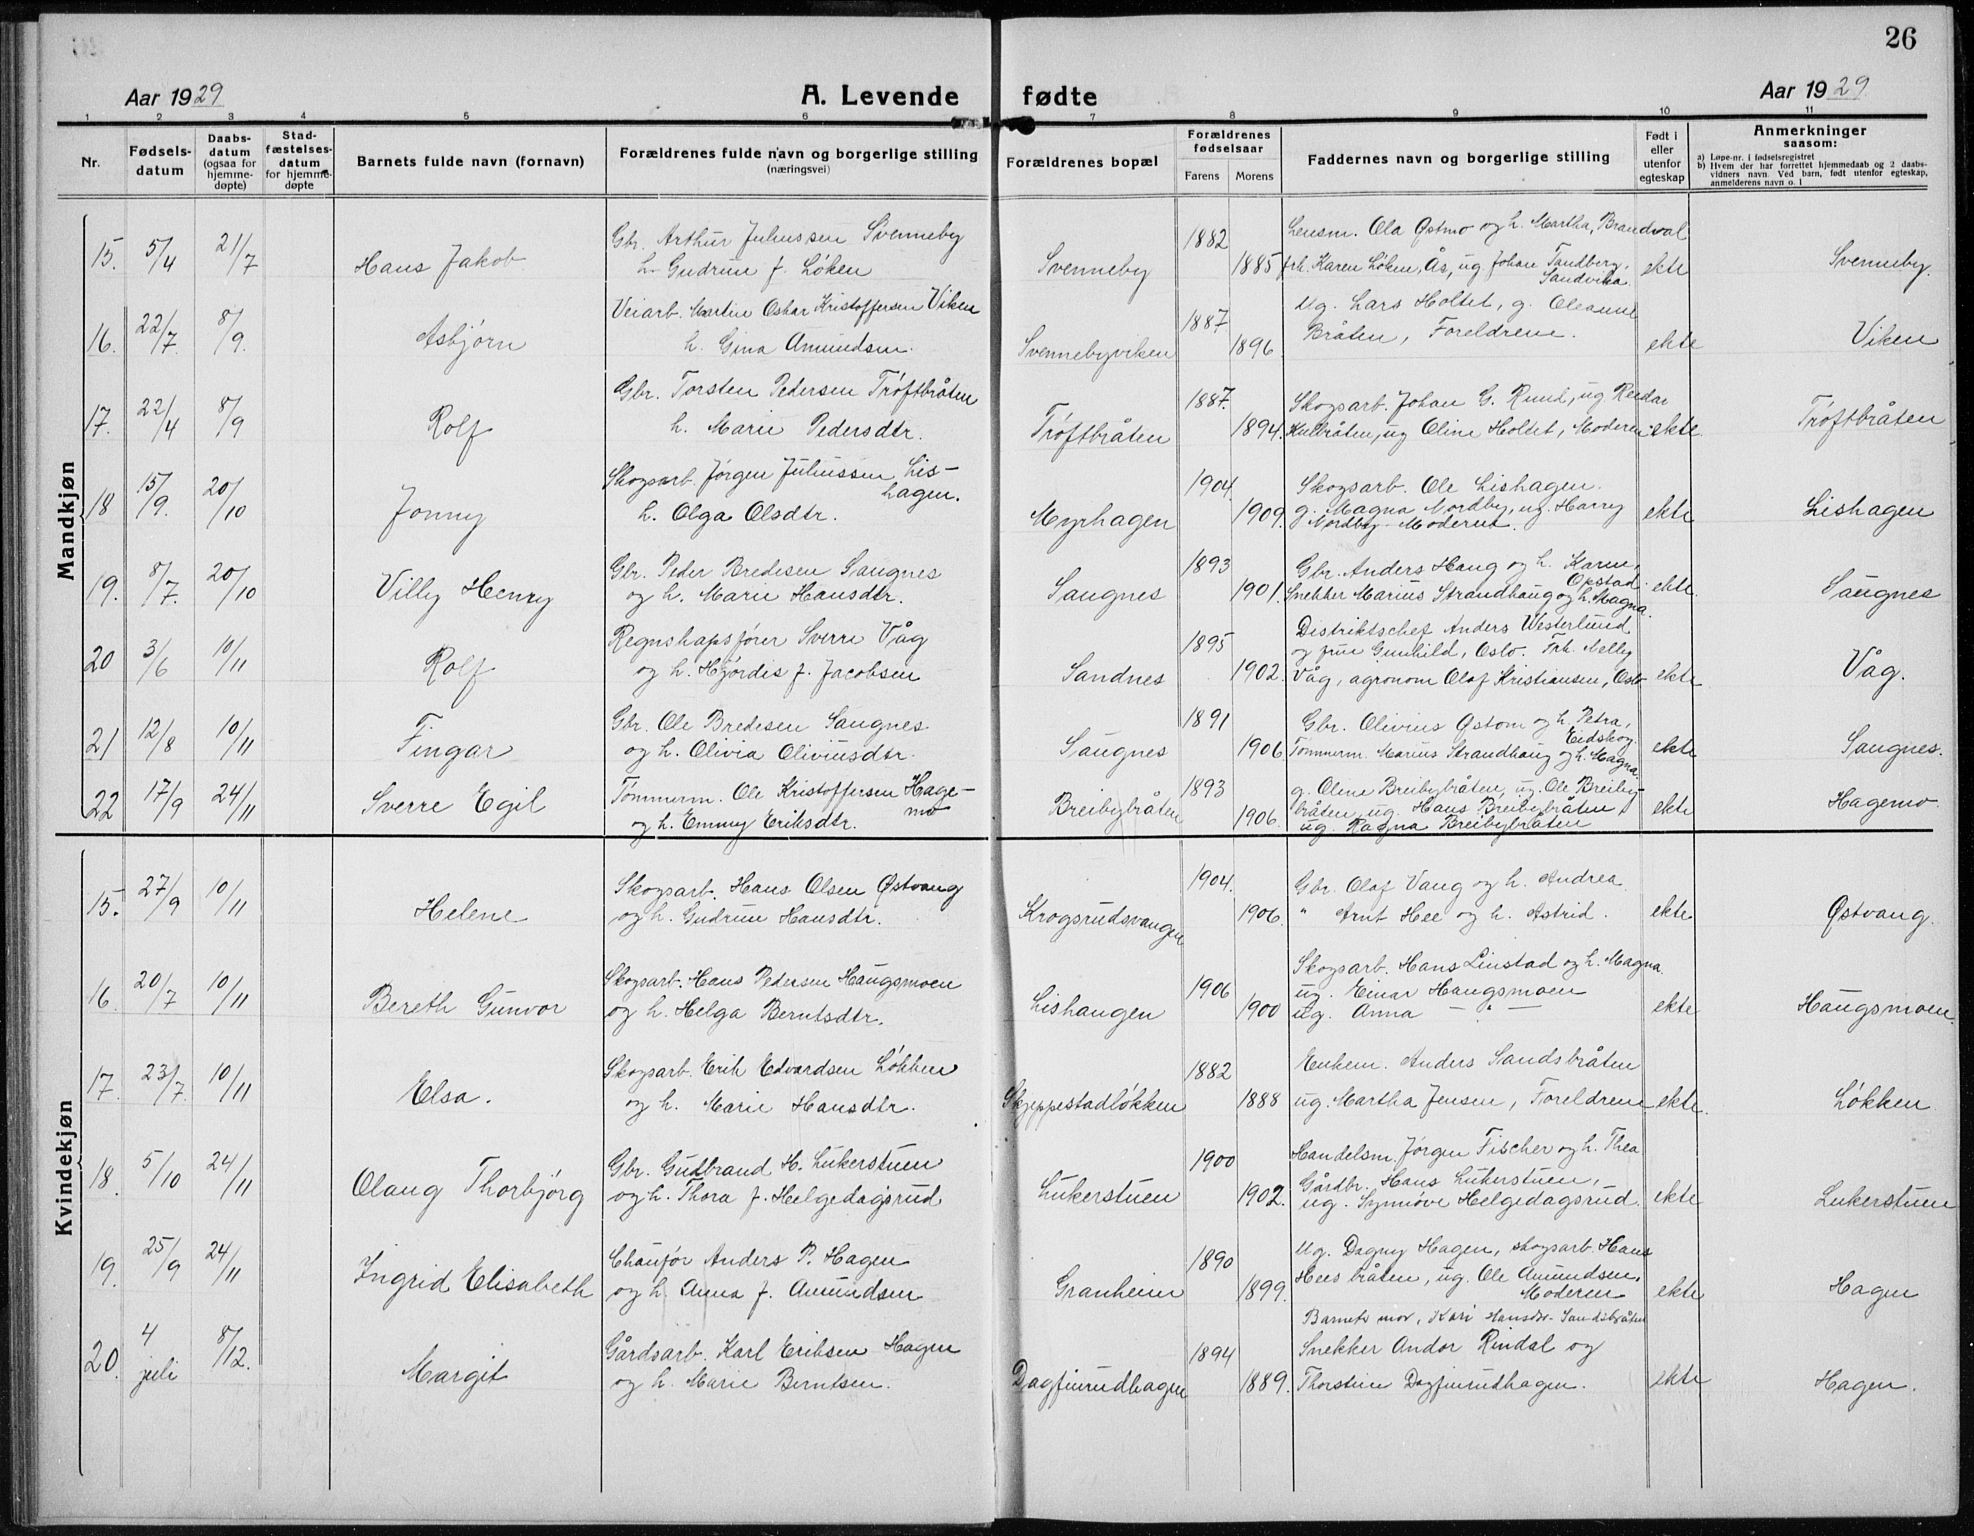 26
Aar 1929
A. Levende fødte
Aar 1929
1 2 3 4 5 6 7 8 9 10 11
Nr.
Fødsels-
datum
Daabs-
datum
(ogsaa for
hjemme-
døpte)
Stad-
fæstelses-
datum
for hjemme-
døpte
Barnets fulde navn (fornavn)
Forældrenes fulde navn og borgerlige stilling
(næringsvei)
Forældrenes bopæl
Forældrenes
fødselsaar
Farens Morens
Faddernes navn og borgerlige stilling
Født i
eller
utenfor
egteskap
Anmerkninger
saasom:
a) Løpe-nr. i fødselsregistret
b) Hvem der har forrettet hjemmedaab og 2 daabs-
vidners navn. Ved barn, født utenfor egteskap,
anmelderens navn o. l
Mandkjøn
15. 5/4 21/7 Hans Jakob
Gbr. Arthur Juliussen Svenneby
h. Gudrun f. Løken
Svenneby 1882 1885
Lensm. Ola Østmo og h. Martha, Brandval
frk. Karen Løken, Ås, ug. Johan Tandberg,
Sandvika
ekte Svenneby.
16. 22/7. 8/9. Asbjørn
Veiarb. Martin Oskar Kristoffersen Viken
h. Gina Amundsen.
Svennebyviken 1887 1896
Ug. Lars Holtet, g. Oleanne
Bråten, Foreldrene.
ekte Viken
17. 22/4 8/9 Rolf
Gbr. Torsten Pedersen Trøftbråten
h. Marie Pedersdtr.
Trøftbråten 1887. 1894.
Skogsarb. Johan G. Rund, ug. Reidar
Kulbråten, ug Oline Holtet, Moderen
ekte. Trøftbråten
18 15/9. 20/10 Jonny
Skogsarb. Jørgen Juliussen Lis-
hagen.
h. Olga Olsdtr.
Myrhagen 1904. 1909.
Skogsarb. Ole Lishagen.
g. Magna Nordby, ug. Harry
Nordby. Moderen.
ekte Lishagen
19. 8/7. 20/10 Villy Henry
Gbr. Peder Bredesen Saugnes
og h. Marie Hansdtr.
Saugnes 1893 1901.
Gbr. Anders Haug og h. Karen,
Opstad.
Snekker Marius Strandhaug og h. Magna.
ekte. Saugnes
20 3/6 10/11 Rolf
Regnskapsfører Sverre Våg
og h. Hjørdis f. Jacobsen
Sandnes 1895 1902.
Distriktschef Anders Westerlund
og frue Gunhild, Oslo. Frk. Nelly
Våg, agronom Olaf Kristiansen, Oslo
ekte Våg.
21 12/8 10/11 Fingar
Gbr. Ole Bredesen Saugnes
og h. Olivia Oliviusdtr.
Saugnes 1891 1906
Gbr. Olivius Østom og h. Petra,
Eidskog.
Tømmerm. Marius Strandhaug og h. Magna.
ekte Saugnes.
22 17/9 24/11 Sverre Egil
Tømmerm. Ole Kristoffersen Hage-
mo
og h. Emmy Eriksdtr.
Breibybråten 1893 1906.
g. Oline Breibybråten, ug. Ole Breiby-
bråten, ug. Hans Breibybråten,
ug. Ragna Breibybråten
ekte Hagemo.
Kvindekjøn
15. 27/9 10/11 Helene
Skogsarb. Hans Olsen Østvang
og h. Gudrun Hansdtr.
Krogsrudsvangen 1904. 1906.
Gbr. Olaf Vang og h. Andrea.
" Arnt Hee og h. Astrid.
ekte Østvang.
16. 20/7 10/11 Bereth Gunvor
Skogsarb. Hans Pedersen Haugsmoen
og h. Helga Berntsdtr.
Lishaugen 1906 1900
Skogsarb. Hans Linstad og h. Magna.
ug. Einar Haugsmoen
ug. Anna — " —
ekte Haugsmoen.
17. 23/7. 10/11 Elsa.
Skogsarb. Erik Edvardsen Løkken
og h. Marie Hansdtr.
Skjeppestadløkken 1882 1888
Enkem. Anders Sandsbråten
ug. Martha Jensen, Foreldrene
ekte. Løkken
18. 5/10 24/11 Olaug Thorbjørg
Gbr. Gudbrand H. Lukerstuen
og h. Thora f. Helgedagsrud
Lukerstuen 1900 1902.
Handelsm. Jørgen Fischer og h. Thea
Gårdbr. Hans Lukerstuen,
ug. Synnøve Helgedagsrud.
ekte Lukerstuen
19. 25/9 24/11 Ingrid Elisabeth
Chauför Anders P. Hagen
og h. Anna f. Amundsen
Granheim 1890 1899.
Ug. Dagny Hagen, skogsarb. Hans
Heesbråten, ug. Ole Amundsen,
Moderen
ekte Hagen
20. 4 juli 8/12. Margit
Gårdsarb. Karl Eriksen Hagen
og h. Marie Berntsen.
Dagfinrudhagen 1894 1889.
Barnets mor, Kari Hansdr. Sandsbråten
Snekker Andor Rindal og
Thorstein Dagfinrudhagen.
ekte Hagen.